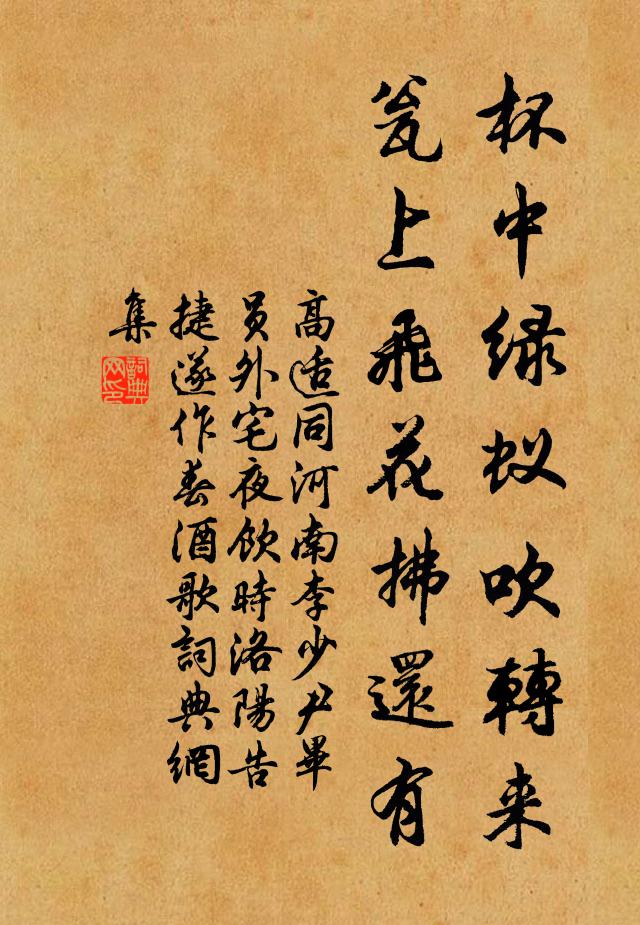 杯中绿蚁吹轉来
瓮上飛花拂還有
高适同河南李少尹畢
員外宅夜飲時洛陽告
捷遂作春酒歌詞典網
集
詞典
网印